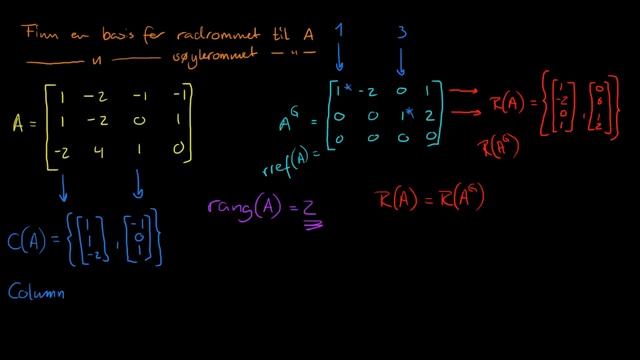 Finn en basis for radrommet til A
—— " —— søylerommet — " —
1 3
A = [ 1 -2 -1 -1
1 -2 0 1
-2 4 1 0 ]
A^G = [ 1* -2 0 1
0 0 1* 2
0 0 0 0 ]
rref(A) =
R(A) = { [ 1 -2 0 1 ] , [ 0 0 1 2 ] }
R(A^G)
rang(A) = 2
R(A) = R(A^G)
C(A) = { [ 1 1 -2 ] , [ -1 0 1 ] }
Column